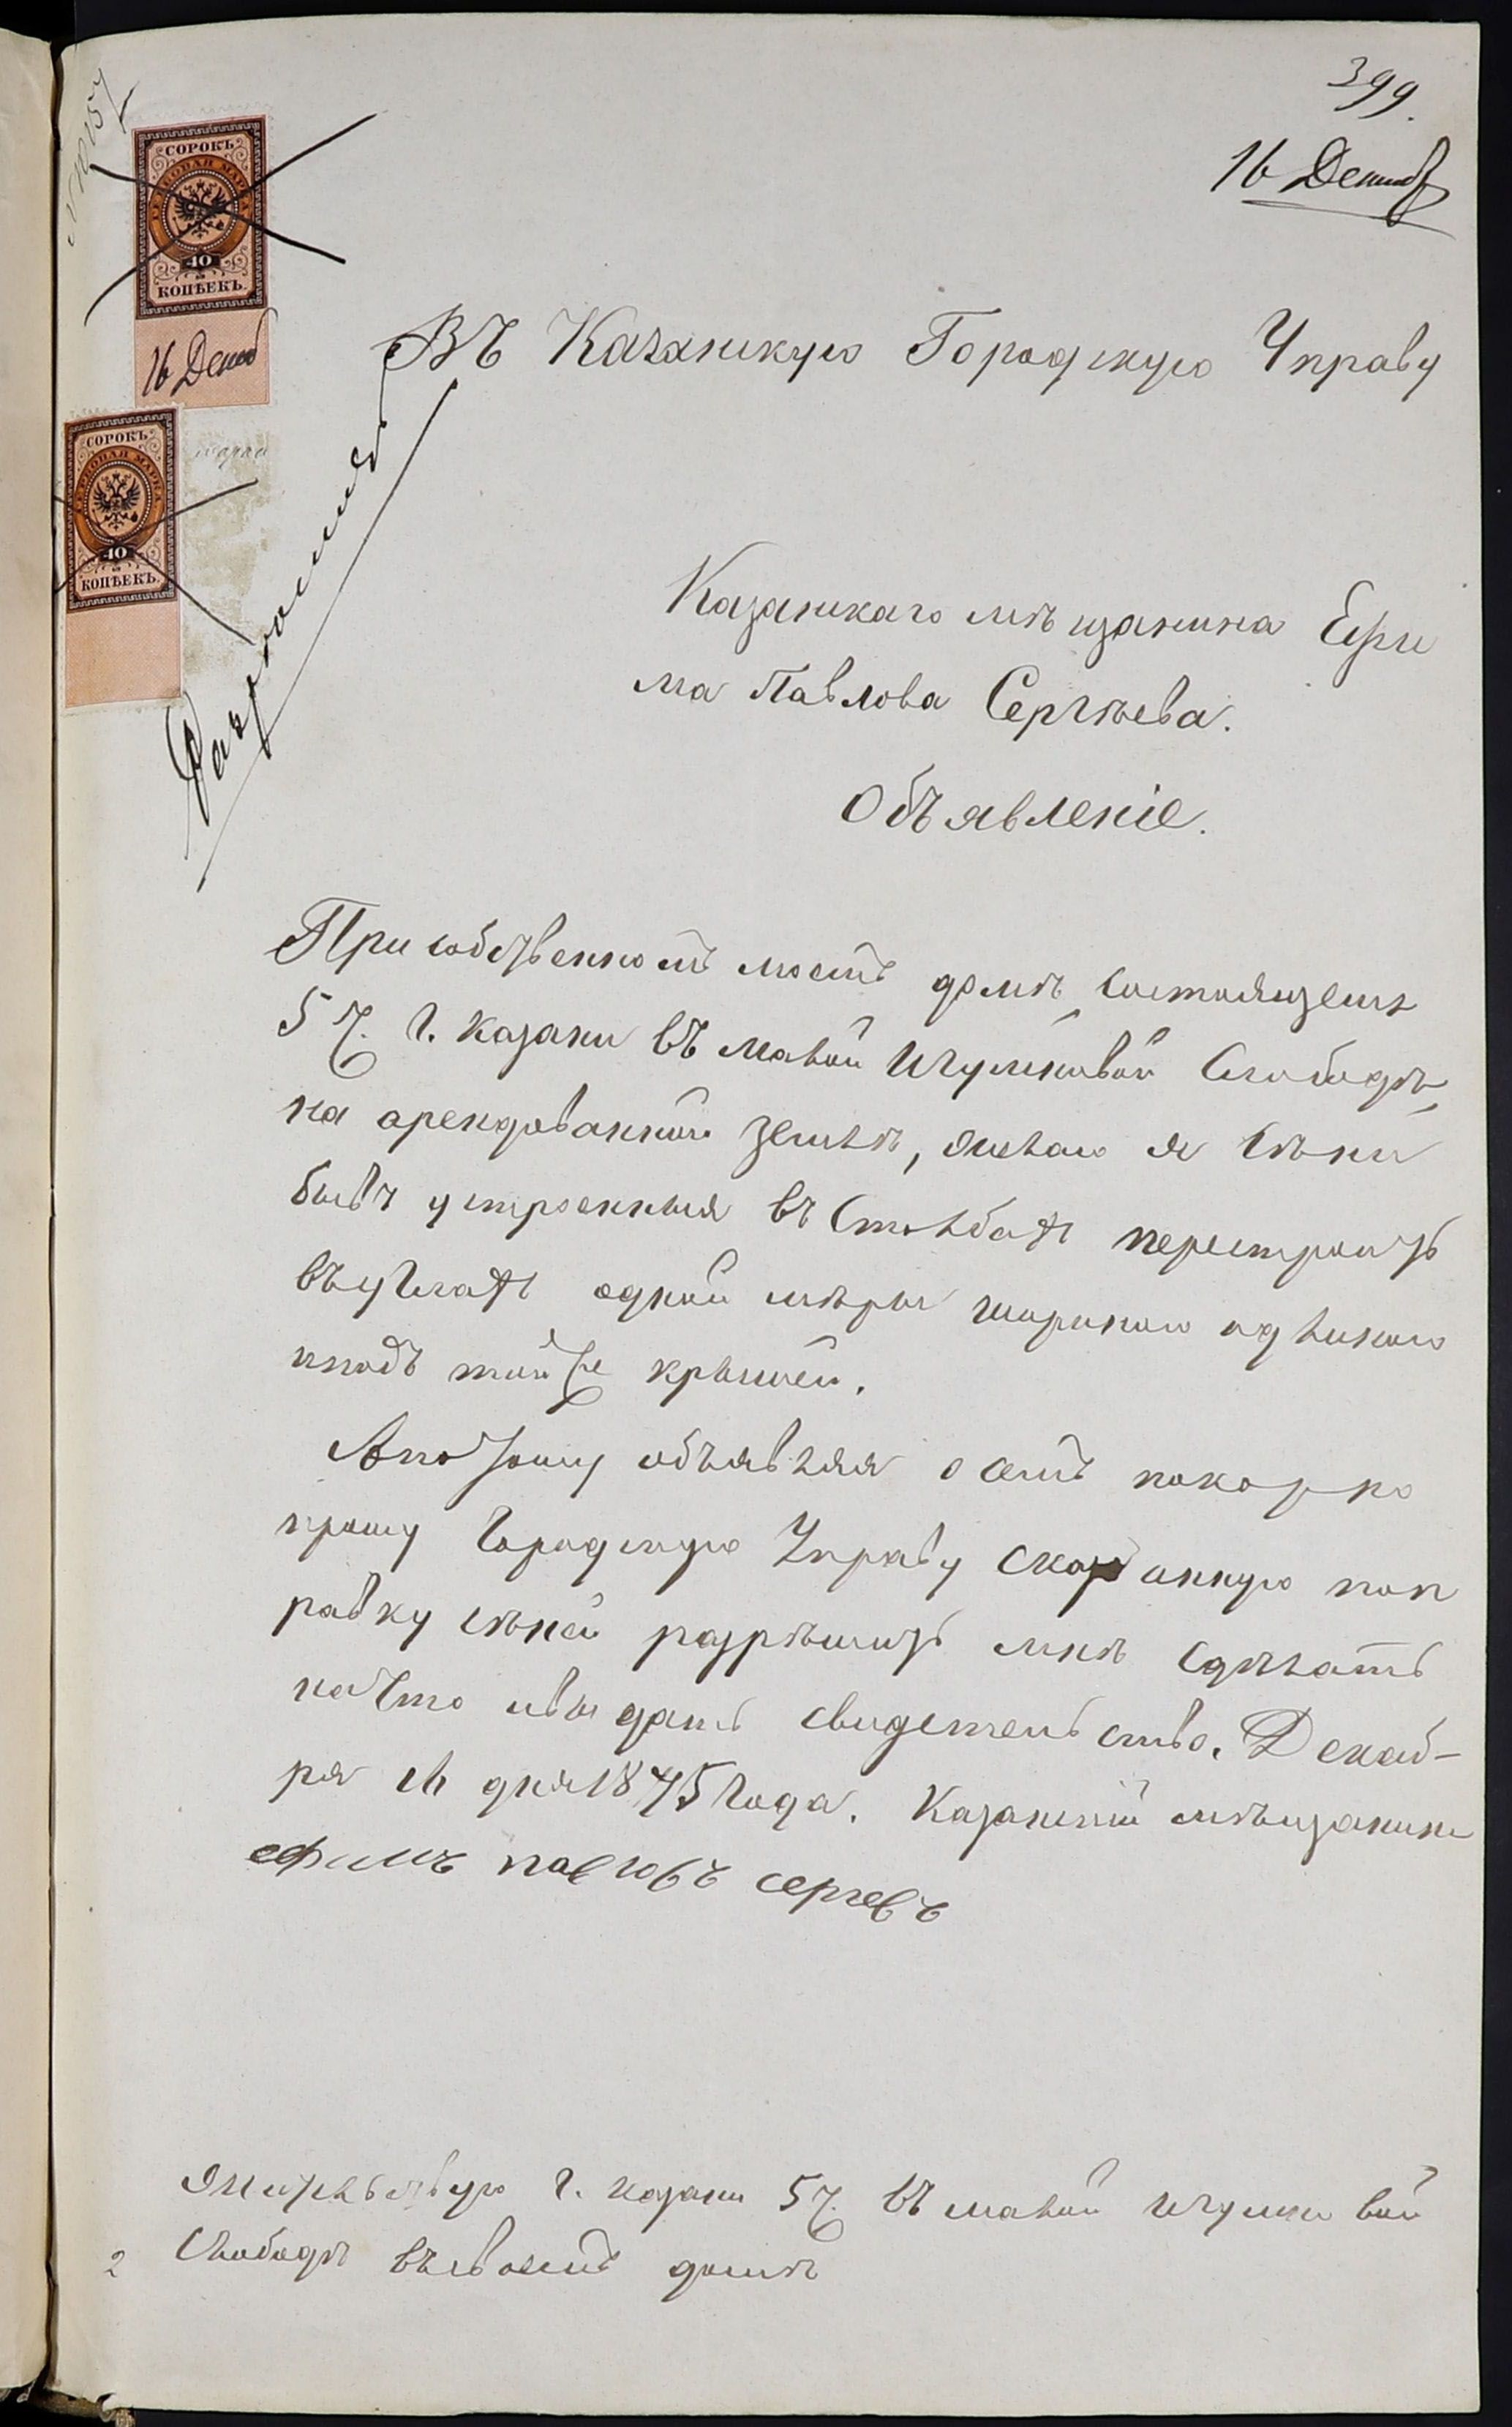 399.
16 Декаб
№ 10157
СОРОКЪ
ГЕРБОВАЯ МАРКА
40
КОПѢЕКЪ.
16 Декаб
СОРОКЪ
ГЕРБОВАЯ МАРКА
40
КОПѢЕКЪ.
марка
Въ Казанскую Городскую Управу
Казанскаго мѣщанина Ефи
ма Павлова Сергѣева.
Объявленіе.
При собственномъ моемъ домѣ состоящемъ
5 ч. г. Казани въ малой Игумновой Слободѣ,
на арендованной землѣ, желаю я сѣни
бывъ устроенныя въ столбахъ перестроить
въ углахъ одной мѣры шириною идлиною
иподъ тойже крышей.
Апотому объявляя о семъ покорно
прошу Городскую Управу сказанную поп
равку сѣней разрѣшить мнѣ сдѣлать
начто ивыдать свидетельство. Декаб-
ря дня 1875 года. Казанскій мѣщанинъ
ефимъ павловъ сергевъ
Жительствую г. Казани 5 ч. въ малой Игумновой
Слободѣ въ своемъ домѣ
2